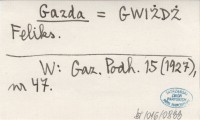 Gazda = GWIŻDŻ
Feliks.
W: Gaz. Podh. 15 (1927),
nr 47.